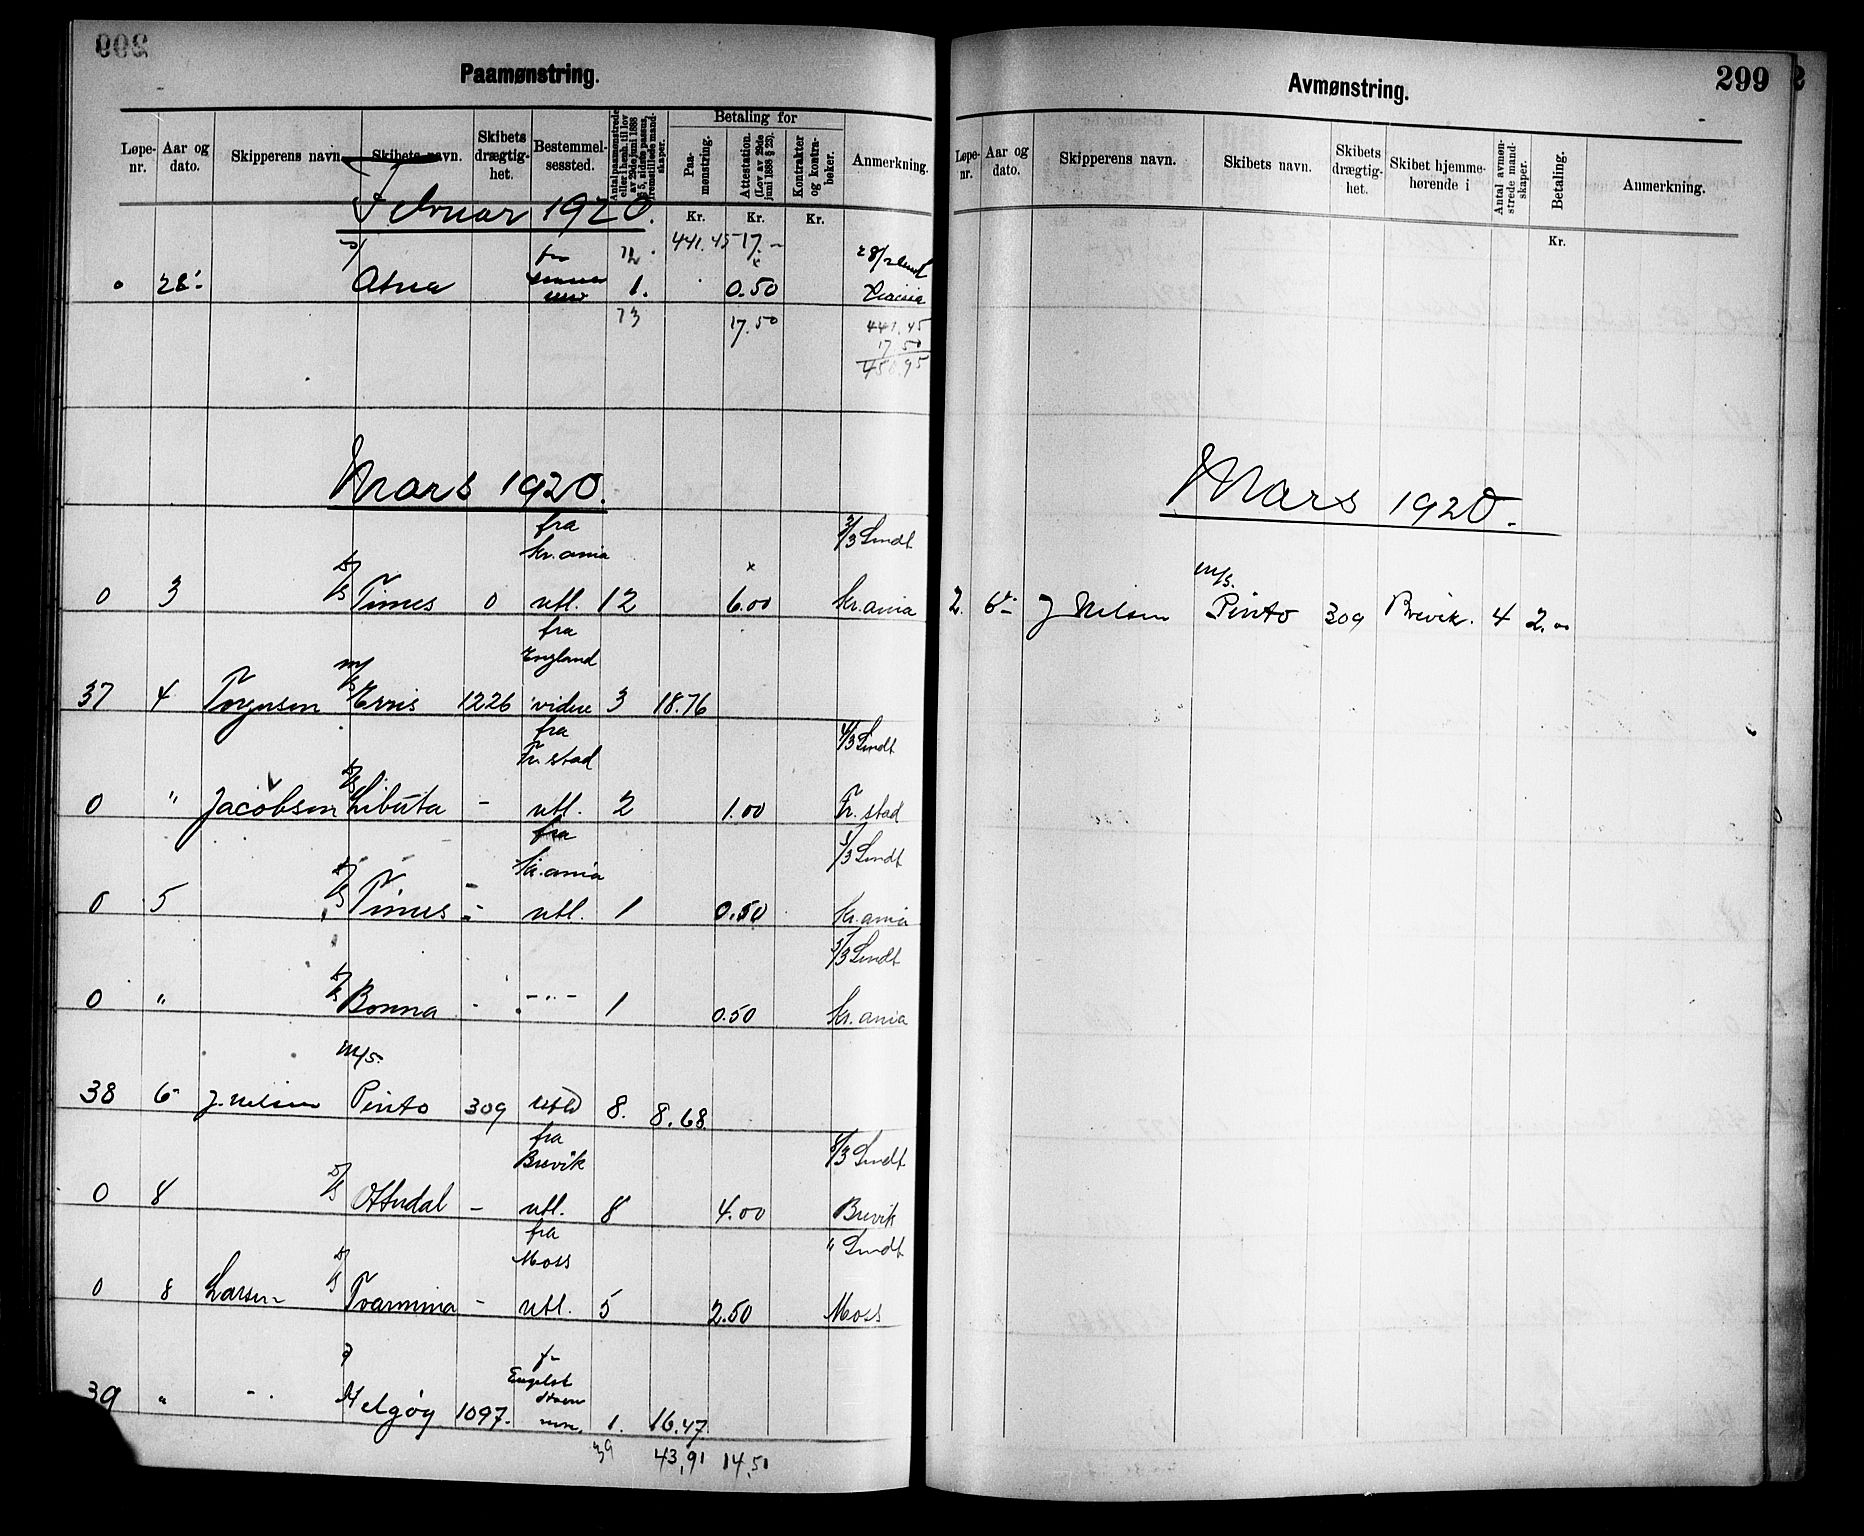 Paamønstring.
Løpe-nr. Aar og dato. Skipperens navn. Skibets navn. Skibets drægtighet. Bestemmelsessted. Antal paamønstrede eller i henh. til lov av 29de juni 1888 § 5, sidste passus, fremstillede mandskaper. Betaling for Paamønstring. Attestation. (Lov av 29de juni 1888 § 23). Kontrakter og kontrabøker. Anmerkning.
Kr. Kr. Kr.
Februar 1920.
72 441.45 17.-
0 28/- Atna 1. 0.50 28/2 Sendt
73 17.50 441.45
17 50
450.95
Mars 1920.
fra Kr.ania 3/3 Sendt
0 3 D/S Times 0 utl. 12 6.00 Kr.ania
fra England
37 4 Torgersen M/S Ervis 1226 videre 3 18.76
fra Fr.stad 4/3 Sendt
0 " Jacobsen D/S Libuta - utl. 2 1.00 Fr.stad
fra Kr.ania 5/3 Sendt
0 5 D/S Times - utl. 1 0.50 Kr.ania
5/3 Sendt
0 " D/S Bonna - -"- 1 0.50 Kr.ania
M/S.
38 6- J. Nelsen Pinto 309 utld 8. 8.68
fra Brevik 8/3 Sendt
0 8 D/S Ottudal - utl. 8 4.00 Brevik
fra Moss " Sendt
0 8 Larsen D/S Tvarmina - utl. 5 2.50 Moss
39 " -" Helgøy 1097- 1. 16.47
39 43,91 14,51
Avmønstring. 299
Løpe-nr. Aar og dato. Skipperens navn. Skibets navn. Skibets drægtighet. Skibet hjemmehørende i Antal avmønstrede mandskaper. Betaling. Anmerkning.
Kr.
Mars 1920.
M/S.
2. 6- J Nelsen Pinto 309 Brevik. 4 2.00